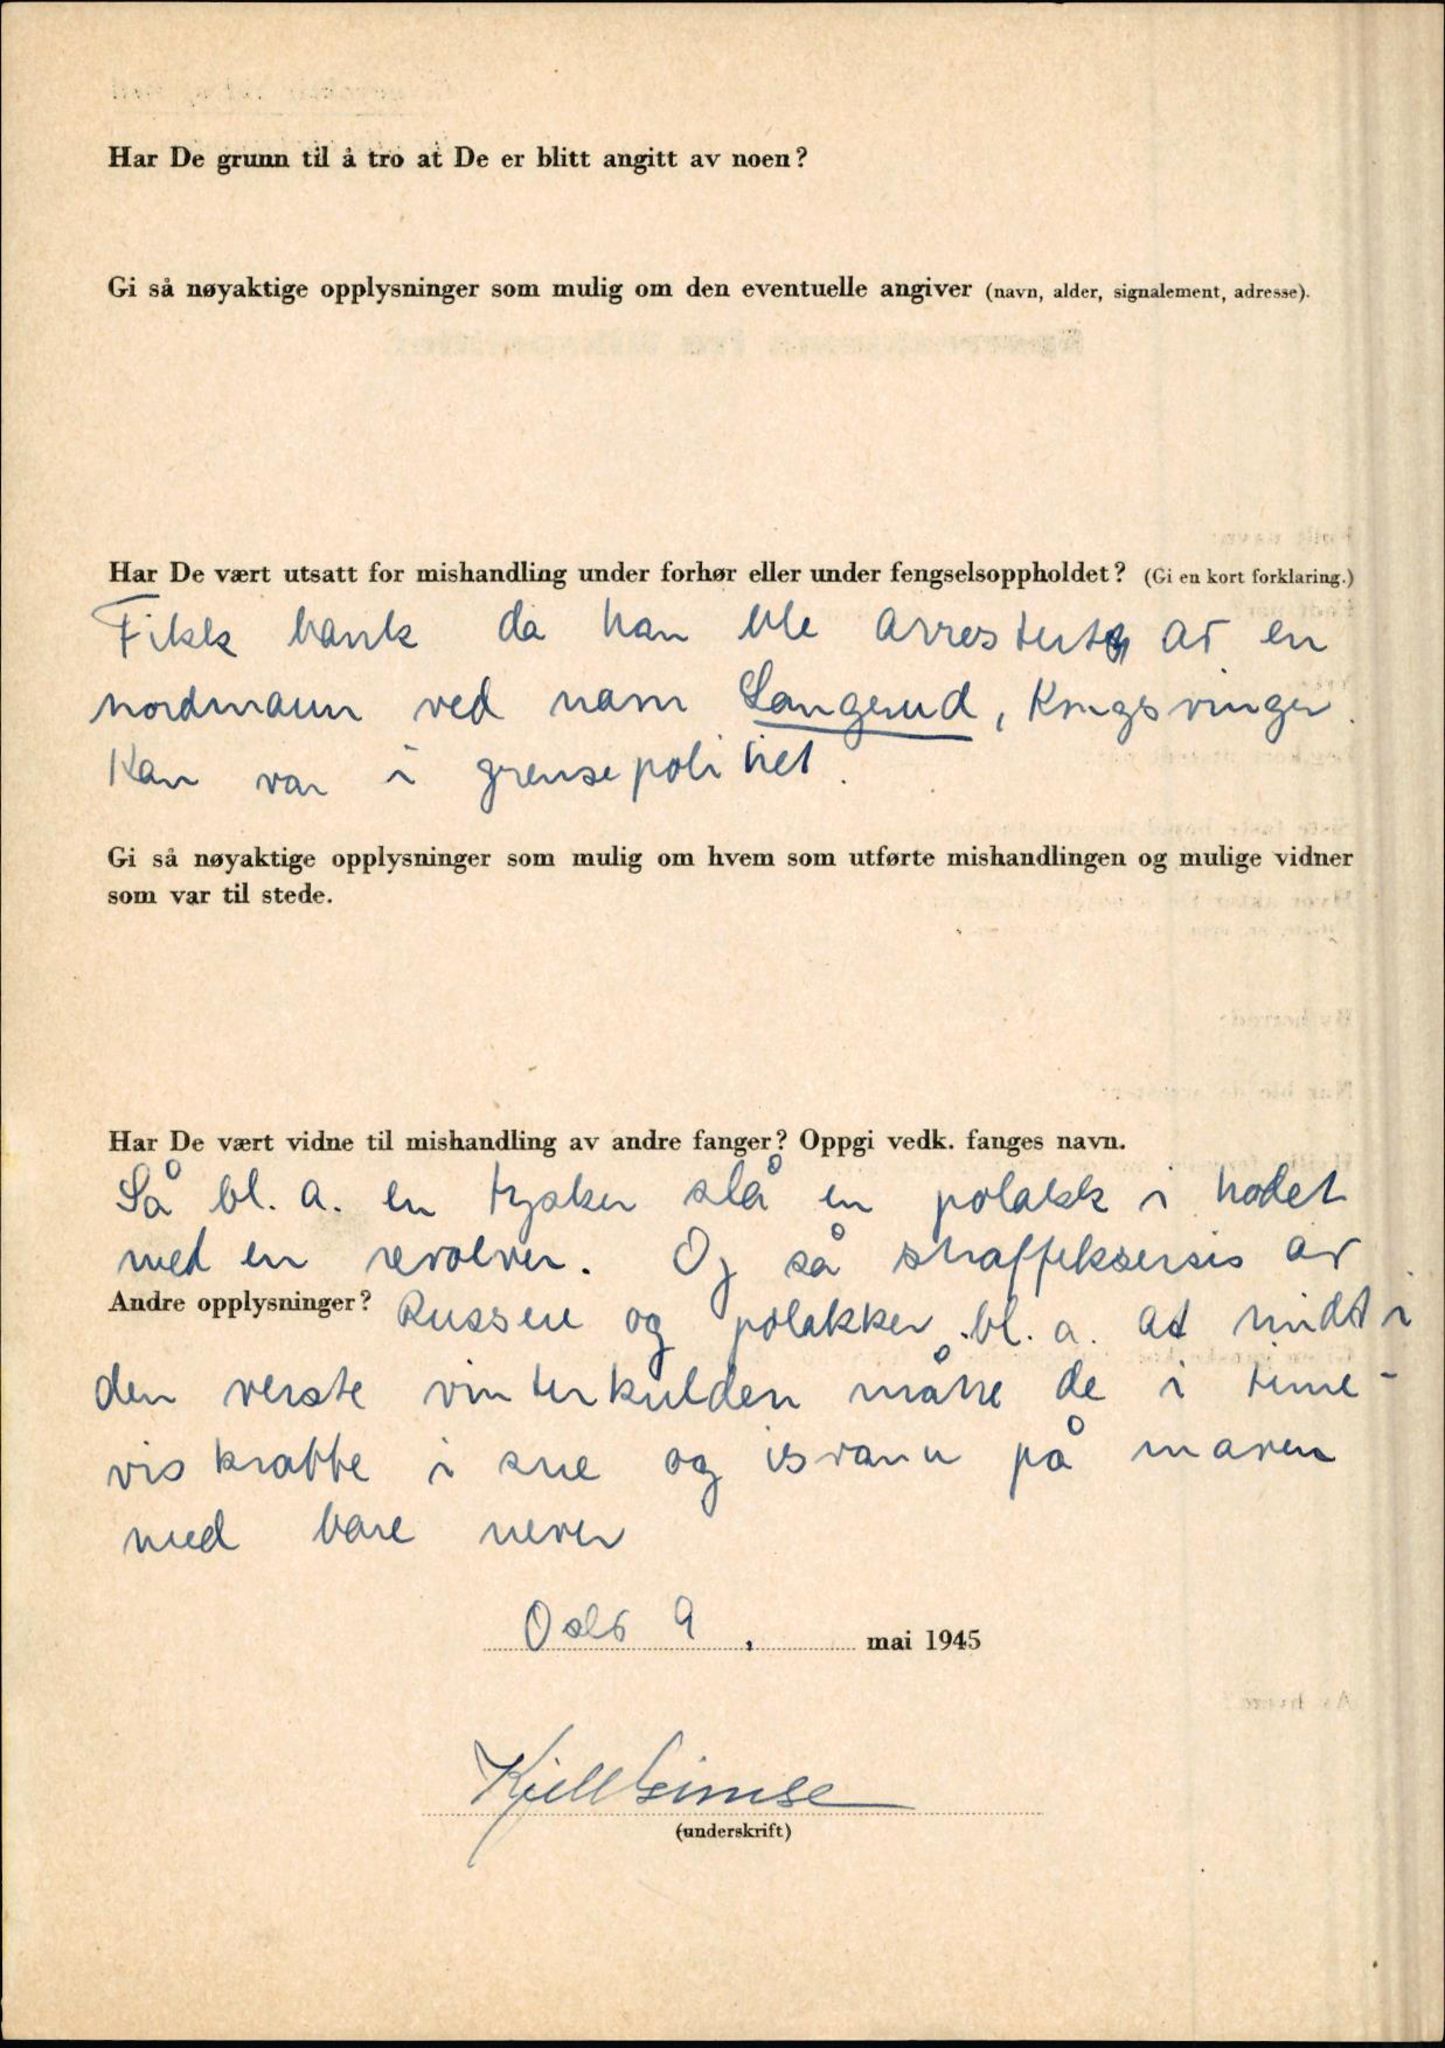 Har De grunn til å tro at De er blitt angitt av noen?
Gi så nøyaktige opplysninger som mulig om den eventuelle angiver (navn, alder, signalement, adresse).
Har De vært utsatt for mishandling under forhør eller under fengselsoppholdet? (Gi en kort forklaring.)
Fikk bank da han ble arrestert av en
nordmann ved navn Langerud, Kongsvinger.
Han var i grensepolitiet.
Gi så nøyaktige opplysninger som mulig om hvem som utførte mishandlingen og mulige vidner
som var til stede.
Har De vært vidne til mishandling av andre fanger? Oppgi vedk. fanges navn.
Så bl. a. en tysker slå en polakk i hodet
med en revolver. Og så straffeksersis av
Andre opplysninger? Russere og polakker bl. a. at midt i
den verste vinterkulden måtte de i time-
vis krabbe i sne og isvann på maven
med bare never
Oslo 9. mai 1945
Kjell Gimse
(underskrift)